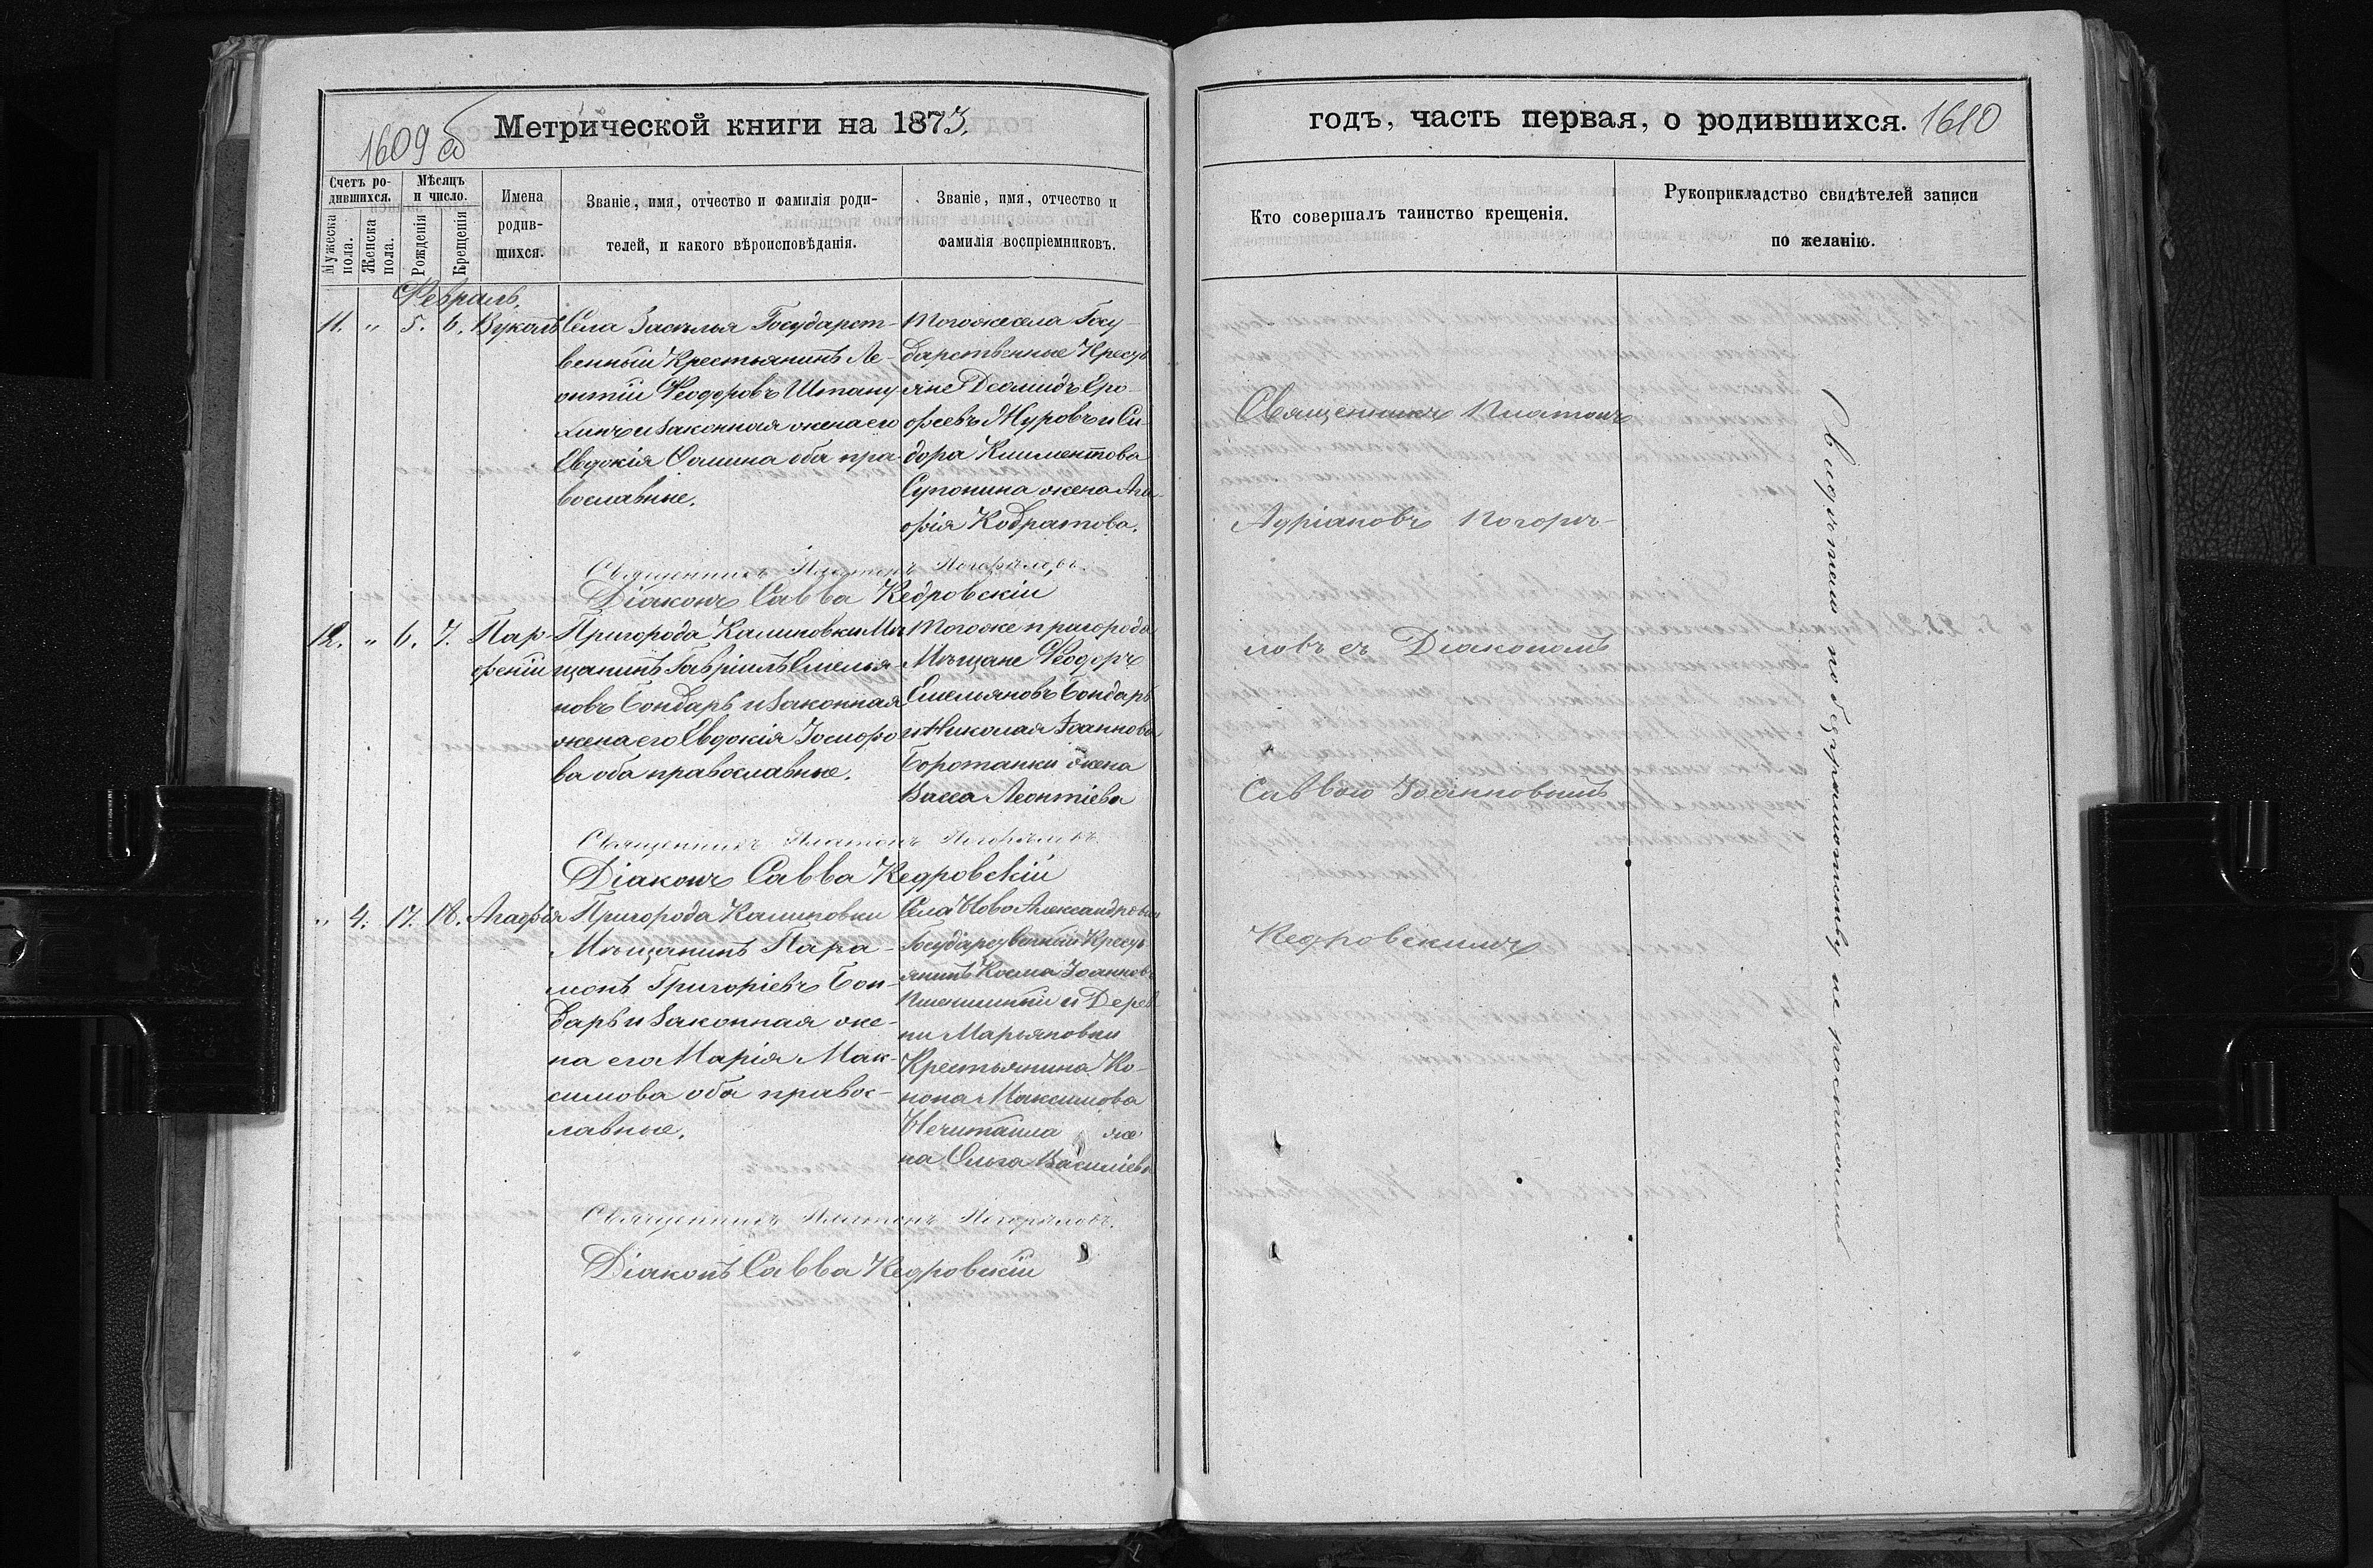 1609 об
Метрической книги на 1873.
Счетъ родившихся.
Мѣсяцъ и число.
Мужеска пола.
Женска пола.
Рожденія
Крещенія
Имена родившихся.
Званіе, имя, отчество и фамилія роди-
телей, и какого вѣроисповѣданія.
Званіе, имя, отчество и
фамилія воспріемниковъ.
Февраль.
11. " 5. 6. Вуколъ
Села Засѣлья Государст-
венный Крестьянинъ Ле-
онтій Феодоровъ
и законная жена его
Евдокія Фомина оба пра-
вославные.
Того же села Госу-
дарственные Кресть
яне Деомидъ Еро-
феевъ Журовъ и Си-
дора Климентова
Супонина жена Ага-
фія Кодратова.
Священникъ Платонъ Погорѣловъ.
Діаконъ Савва Кедровскій
12. " 6. 7. Пар-
феній
Пригорода Калиновки Мѣ
щанинъ Гавріилъ Емелья-
новъ Бондарь и законная
жена его Евдокія
ва оба православные.
Того же пригорода
Мѣщане Феодоръ
Емельяновъ Бондарь
и Николая Іоаннова
Боротанки жена
Васса Леонтіева
Священникъ Платонъ Погорѣловъ
Діаконъ Савва Кедровскій
" 4. 17. 18. Агафія
Пригорода Калиновки
Мѣщанинъ Пара-
монъ Григоріевъ Бон-
дарь и законная же-
на его Марія Мак-
симова оба правос-
лавные.
Села Ново Александровки
Государственный Кресть
янинъ Косма Іоанновъ
и Дерев
ни Марьяновки
Крестьянина Ко-
нона Максимова
Нечитаила же-
на Ольга Василіева
Священникъ Платонъ Погорѣловъ.
Діаконъ Савва Кедровскій
годъ, часть первая, о родившихся.
1610
Кто совершалъ таинство крещенія.
Рукоприкладство свидѣтелей записи
по желанію.
Священникъ Платонъ
Адріановъ Погорѣ-
ловъ съ Діакономъ
Саввою Іоанновымъ
Кедровскимъ
по безграмотству не росписались